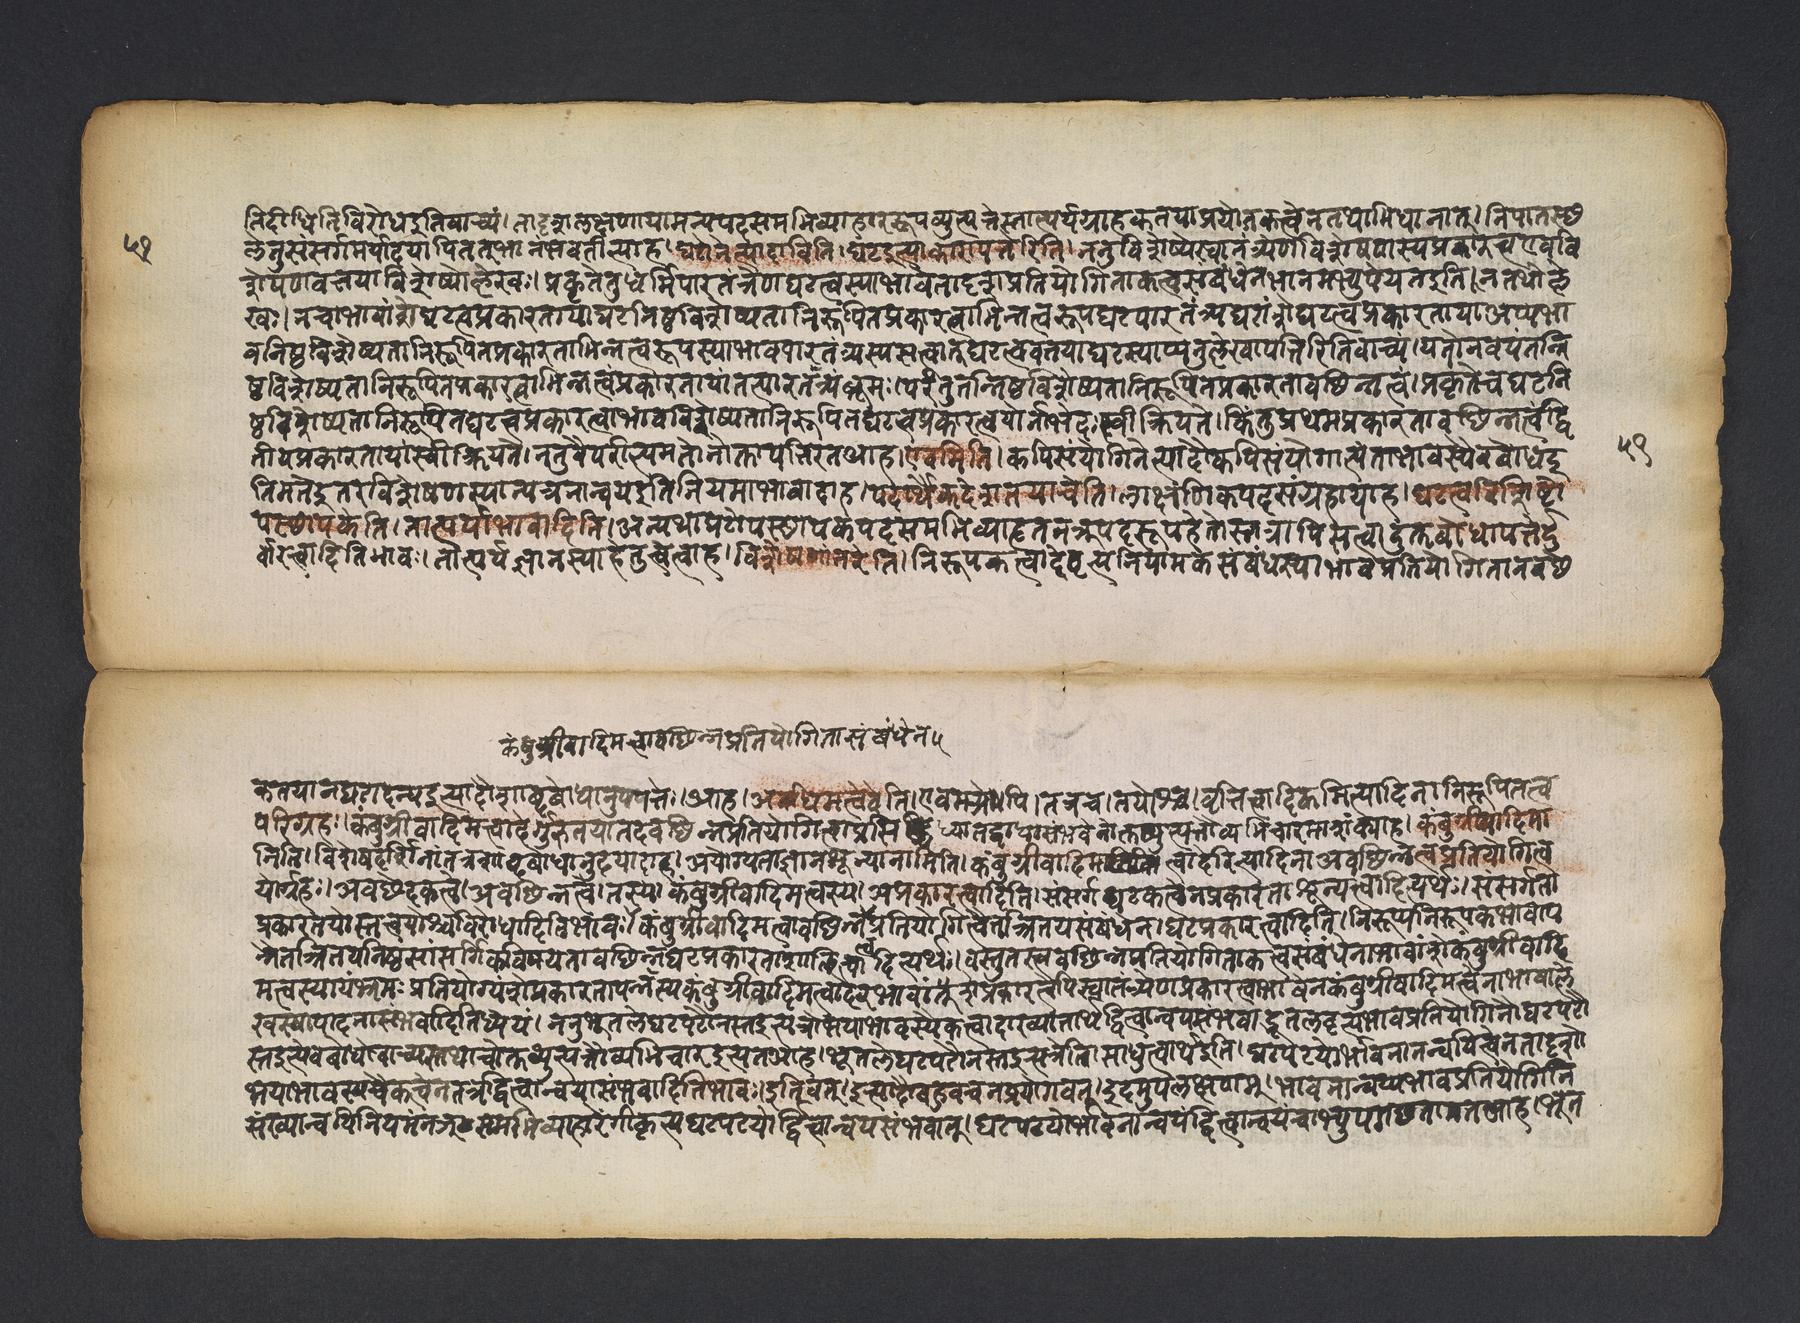 तिदीधितिविरोधइतिवाच्यं। तादृशलक्षणायामन्यपदसमभिव्याहाररूपव्युत्पत्तेस्तात्पर्यग्राहकतयाप्रयोजकत्वेनतथाभिधानात्। निपातस्थ
५१
लेतुसंसर्गमर्यादयापितत्भानसंभवतीत्याह। घटोनेत्यादाविति। घटइत्याकारापत्तेरिति। ननुविशेष्यस्वातंत्र्येणविशेषणस्यप्रकारत्वएवंवि
शेषणवत्तयाविशेष्योल्लेखः। प्रकृतेतुधर्मिपारतंत्र्येणघटत्वस्याभावेतादृशप्रतियोगिताकत्वसंबंधेनभानमभ्युपेयतइति। नतथोल्ले
खः। नचाभावांशेघटत्वप्रकारतायांघटनिष्ठविशेष्यतानिरूपितप्रकारत्वाभिन्नत्वरूपघटपारतंत्र्यघटांशेघटत्वप्रकारतायाअप्यभा
वनिष्ठविशेष्यतानिरूपितप्रकारताभिन्नत्वरूपस्याभावपारतंत्र्यस्यसत्वात्घटत्ववत्तयाघटस्याप्यनुल्लेखापत्तिरितिवाच्यं। यतोनवयंतन्नि
ष्ठविशेष्यतानिरूपितप्रकारत्वाभिन्नत्वंप्रकारतायांतत्पारतंत्र्यंब्रूमः। परंतुतन्निष्ठविशेष्यतानिरूपितप्रकारतावछिन्नत्वं। प्रकृतेचघटनि
ष्ठविशेष्यतानिरूपितघटत्वप्रकारत्वाभावविशेष्यतानिरूपितघटत्वप्रकारत्वयोर्नाभेदःस्वीक्रियते। किंतुप्रथमप्रकारतावछिन्नत्वंद्वि
५१
तीयप्रकारतायांस्वीक्रियते। नतुवैपरीत्यमतोनोक्तापत्तिरतआह। एवमिति। कपिसंयोगिनेत्यादौकपिसंयोगात्यंताभावस्यैवबोधइ
तिमतेइतरविशेषणस्यान्यत्रनान्वयइतिनियमाभावादाह। पदार्थैकदेशतयाचेति। लाक्षणिकपदसंग्रहायाह। घटत्वविशिष्टो
पस्थापकेति। तात्पर्याभावादिति। अन्यथाघटोपस्थापकपदसमभिव्याहृतनञ्पदरूपहेतोस्तत्रापिसत्वादुक्तबोधापत्तेर्दु
र्वारत्वादितिभावः। तात्पर्यज्ञानस्याहेतुत्वेत्वाह। विशेषणांतरेति। निरूपकत्वादवृत्यनियामकसंबंधस्याभावप्रतियोगितानवछे
कंबुग्रीवादिमत्त्वावछिन्नप्रतियोगितासंबंधेन॥
कतयानघटादन्यइत्यादौशाब्दबोधानुपपत्तेः। आह। अवधिमत्वेवेति। एवमग्रेपि। तत्रच। तयोश्च। वृत्तित्वादिकमित्यादिनानिरूपितत्व
परिग्रहः। कंबुग्रीवादिमत्त्वादेर्गुरुतयातदवछिन्नप्रतियोगित्वाप्रसि ध्यातद्बोधासंभवेनोक्तव्युत्पत्तौव्यभिचारमाशंक्याह। कंबुग्रीवादिमा
निति। विशेषदर्शिनांतत्रशाब्दबोधानुदयादाह। अयोग्यताज्ञानशून्यानामिति। कंबुग्रीवादिम त्वादेरित्यादिनाअवछिन्नत्वप्रतियोगित्व
योर्ग्रहः। अवछेदकत्वे। अवछिन्नत्वे। तस्य। कंबुग्रीवादिमत्वस्य। अप्रकारत्वादिति। संसर्गघटकत्वेनप्रकारताशून्यत्वादित्यर्थः। संसर्गता
प्रकारतयोस्तत्त्वयोश्चविरोधादितिभावः। कंबुग्रीवादिमत्वावछिन्नप्रतियोगित्वैतत्त्रितयसंबंधेन। घटप्रकारत्वादिति। निरूप्यनिरूपकभावाप
न्नेतत्त्रितयनिष्ठसांसर्गिकविषयतावछिन्नघटप्रकारताशालित्वादित्यर्थः। वस्तुतस्त्ववछिन्नप्रतियोगिताकत्वसंबंधेनाभावांशेकंबुग्रीवादि
मत्वस्यायंभ्रमः प्रतियोग्यंशेप्रकारतापन्नस्यकंबुग्रीवादिमत्वादेरभावांशेप्रकारत्वेपिस्वातंत्र्येणप्रकारत्वाभावेनकंबुग्रीवादिमत्वेनाभावोल्ले
खस्यापादनासंभवादितिध्येयं। ननुभूतलेघटपटौनस्तइत्यत्रोभयाभावस्यैकत्वादाख्यातार्थद्वित्वान्वयासंभवाद्भूतलवृत्यभावप्रतियोगिनौघटपटौ
स्तइत्येवबोधोवाच्यस्तथाचोक्तव्युत्पत्तौव्यभिचारइत्यतआह। भूतलेघटपटौनस्तइत्यत्रेति। साधुत्वार्थइति। घटपटयोर्भावनानन्वयित्वेनतादृशो
भयाभावस्यचैकत्वेनतत्रद्वित्वान्वयासंभवादितिभावः। इतिवत्। इत्यादौबहुवचनप्रयोगवत्। इदमुपलक्षणम्। भावनान्वय्यभावप्रतियोगिनि
संख्यान्वयिनियमंनञ्समभिव्याहारेंगीकृत्यघटपटयोर्द्वित्वान्वयसंभवात्। घटपटयोर्भावनान्वयंद्वित्वान्वयंचाभ्युपगछतांमतआह। भूत